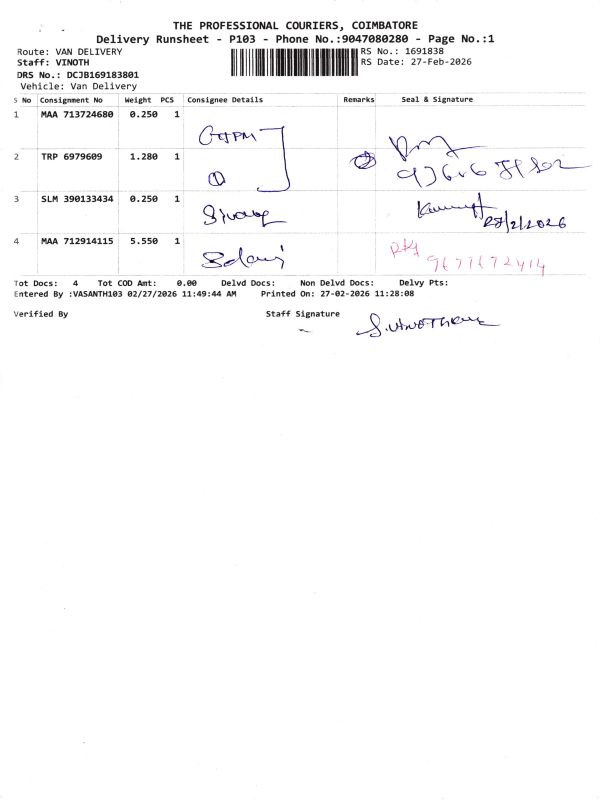 THE PROFESSIONAL COURIERS, COIMBATORE
Delivery Runsheet - P103 - Phone No.:9047080280 - Page No.:1
Route: VAN DELIVERY
RS No.: 1691838
Staff: VINOTH
RS Date: 27-Feb-2026
DRS No.: DCJB169183801
Vehicle: Van Delivery
S No Consignment No Weight PCS Consignee Details Remarks Seal & Signature
1 MAA 713724680 0.250 1
2 TRP 6979609 1.280 1
①
②
3 SLM 390133434 0.250 1
4 MAA 712914115 5.550 1
9677672414
Tot Docs: 4 Tot COD Amt: 0.00 Delvd Docs: Non Delvd Docs: Delvy Pts:
Entered By :VASANTH103 02/27/2026 11:49:44 AM Printed On: 27-02-2026 11:28:08
Verified By Staff Signature